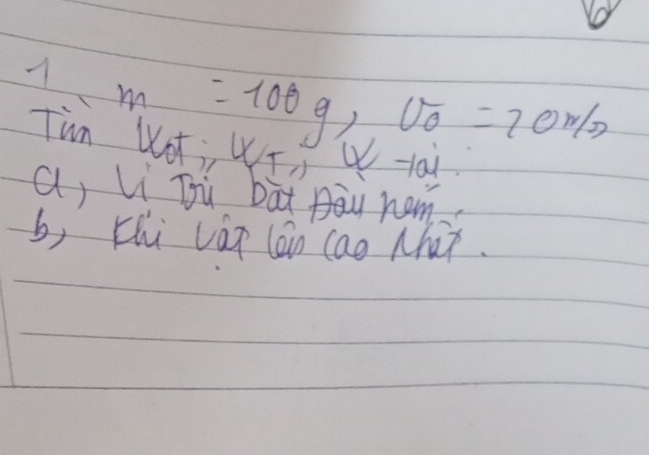 1 m = 100g, v₀ = 20m/s
Tìm Wđt; WT; W tại:
a, Vị Trí bắt Đầu ném.
b, Khi vật lên cao Nhất.